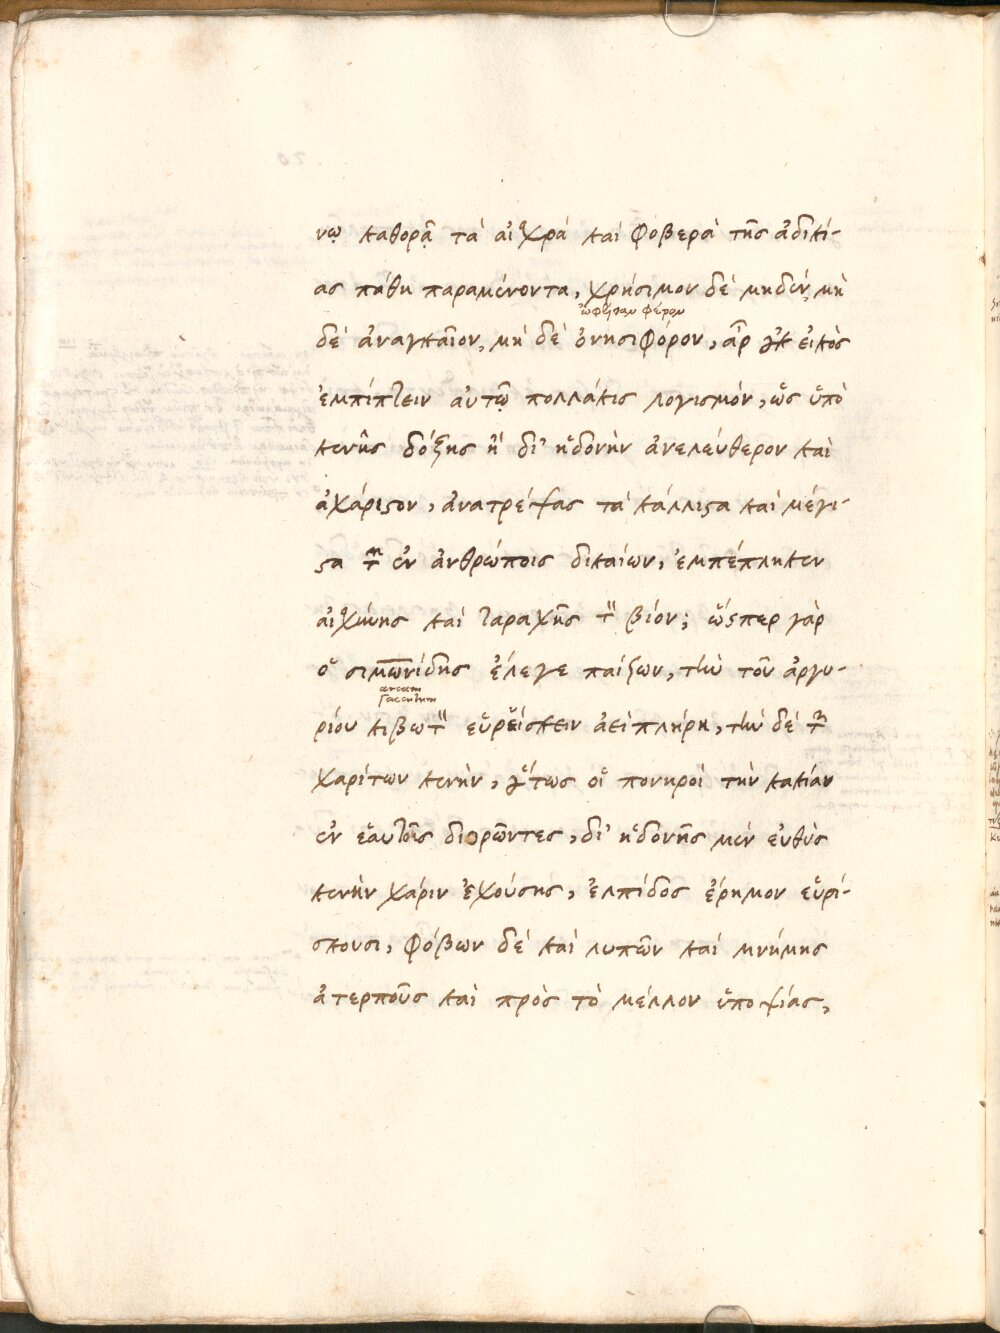 νῳ καθορᾷ τὰ αἰσχρὰ καὶ φοβερὰ τῆς ἀδικί-
ας πάθη παραμένοντα, χρήσιμον δὲ μηδέν, μὴ
ὠφέλειαν φέρον
δὲ ἀναγκαῖον, μὴ δὲ ὀνησιφόρον, ἆρ οὐκ εἰκὸς
ἐμπίπτειν αὐτῷ πολλάκις λογισμόν, ὡς ὑπὸ
κενῆς δόξης ἢ δι' ἡδονὴν ἀνελεύθερον καὶ
ἀχάριστον, ἀνατρέψας τὰ κάλλιστα καὶ μέγι-
στα τῶν ἐν ἀνθρώποις δικαίων, ἐμπέπληκεν
αἰσχύνης καὶ ταραχῆς τὸν βίον; ὥσπερ γὰρ
ὁ σιμωνίδης ἔλεγε παίζων, τὴν τοῦ ἀργυ-
arcam
ρίου κιβωτὸν εὑρείσκειν ἀεὶ πλήρη, τὴν δὲ τῶν
χαρίτων κενὴν, οὕτως οἱ πονηροὶ τὴν κακίαν
ἐν ἑαυτοῖς διορῶντες, δι' ἡδονῆς μὲν εὐθὺς
κενὴν χάριν ἐχούσης, ἐλπίδος ἔρημον εὑρί-
σκουσι, φόβων δὲ καὶ λυπῶν καὶ μνήμης
ἀτερποῦς καὶ πρὸς τὸ μέλλον ὑποψίας,